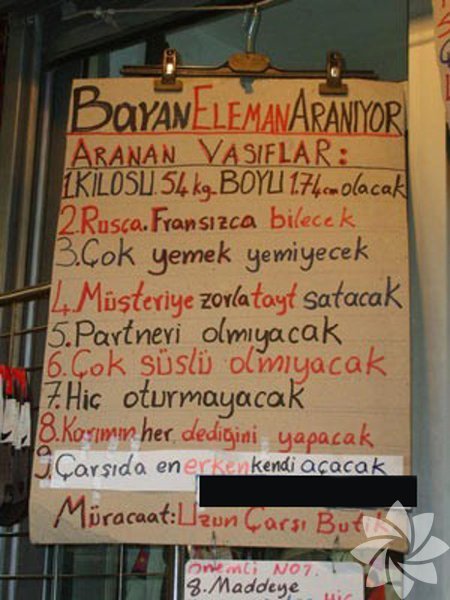 BAYAN ELEMAN ARANIYOR
ARANAN VASIFLAR:
1.KİLOSU 54 kg BOYU 1.74cm olacak
2.Rusça.Fransızca bilecek
3.Çok yemek yemiyecek
4.Müşteriye zorla tayt satacak
5.Partneri olmıyacak
6.Çok süslü olmıyacak
7.Hiç oturmayacak
8.Karımın her dediğini yapacak
9.Çarşıda en erken kendi açacak
Müracaat:Uzun Çarşı Butik
ÖNEMLİ NOT.
8.Maddeye
HİÇ